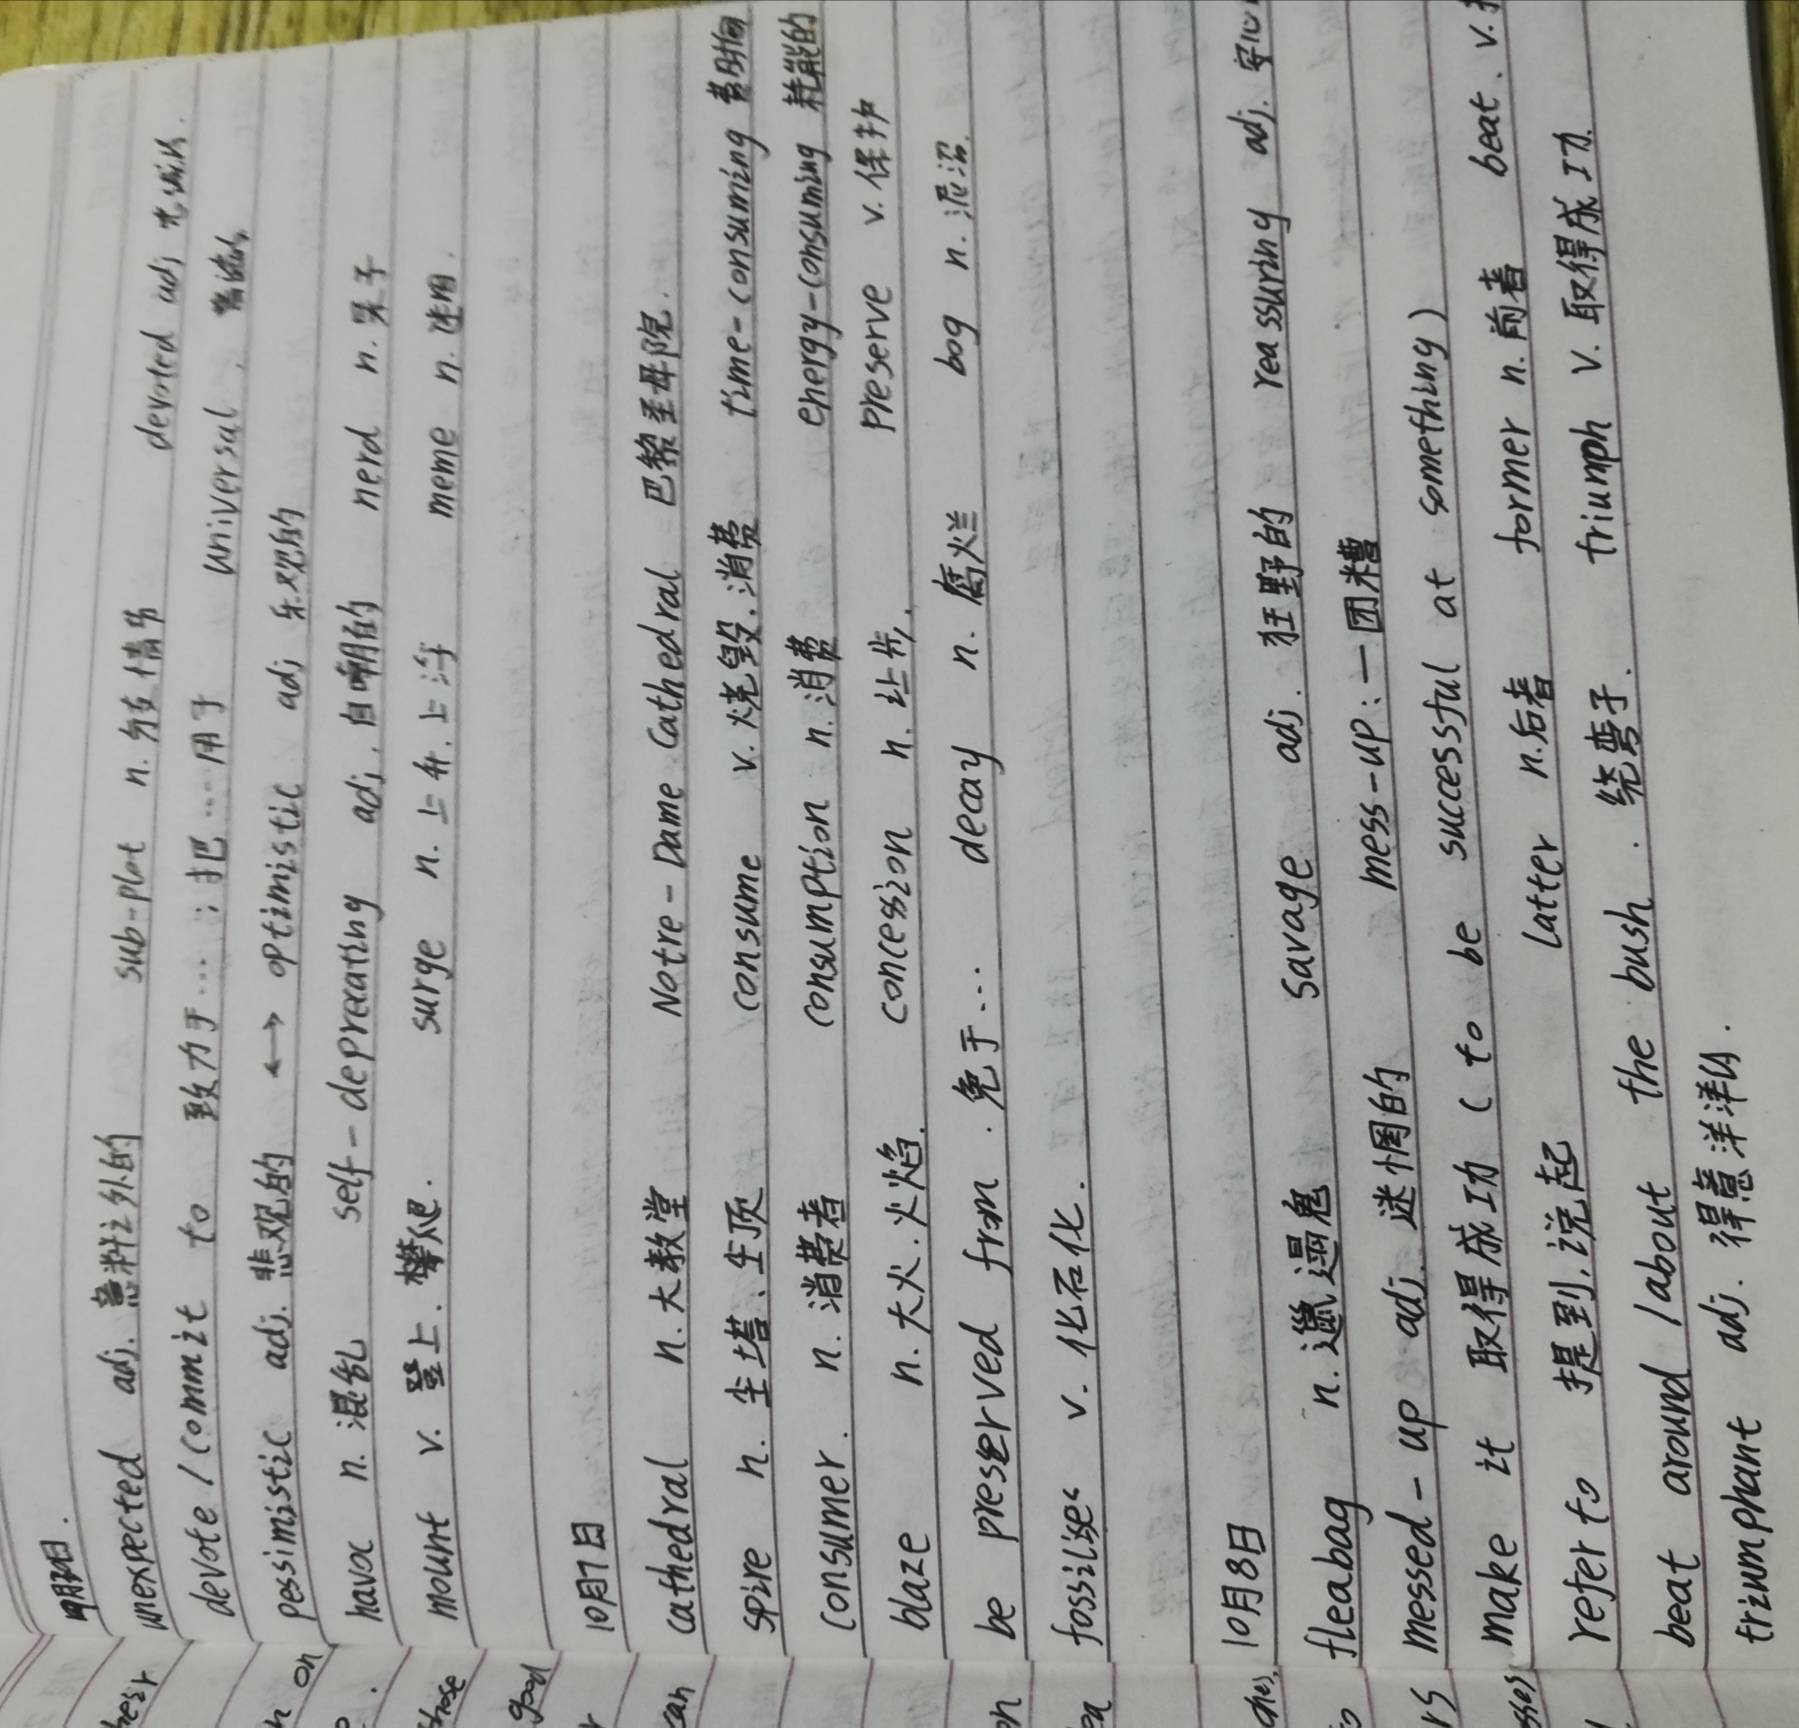 unexpected adj. 意料之外的 sub-plot n. 分支情节 devoted adj
devote/commit to 致力于…;把…用于 universal.
pessimistic adj. 悲观的 ←→ optimistic adj 乐观的
havoc n. 混乱 self-deprecating adj. 自嘲的 nerd n. 呆子
mount v. 登上. 攀爬. surge n. 上升. 上浮 meme n.
10月7日
cathedral n. 大教堂 Notre-Dame Cathedral 巴黎圣母院.
spire n. 尖塔、尖顶 consume v. 烧毁. 消费 time-consuming 费时间
consumer. n. 消费者 consumption n. 消费 energy-consuming 耗能的
blaze n. 大火. 火焰. concession n. 让步. preserve v. 保护
be preserved from. 免于… decay n. 腐烂 bog n. 泥沼.
fossilise v. 化石化.
10月8日
fleabag n. 邋遢鬼 savage adj. 狂野的 reassuring adj.
messed-up adj. 迷惘的 mess-up: 一团糟
make it 取得成功 (to be successful at something) beat. v.
refer to 提到. 说起 latter n. 后者 former n. 前者
beat around/about the bush. 绕弯子. triumph v. 取得成功.
triumphant adj. 得意洋洋的.
on
those
good
can